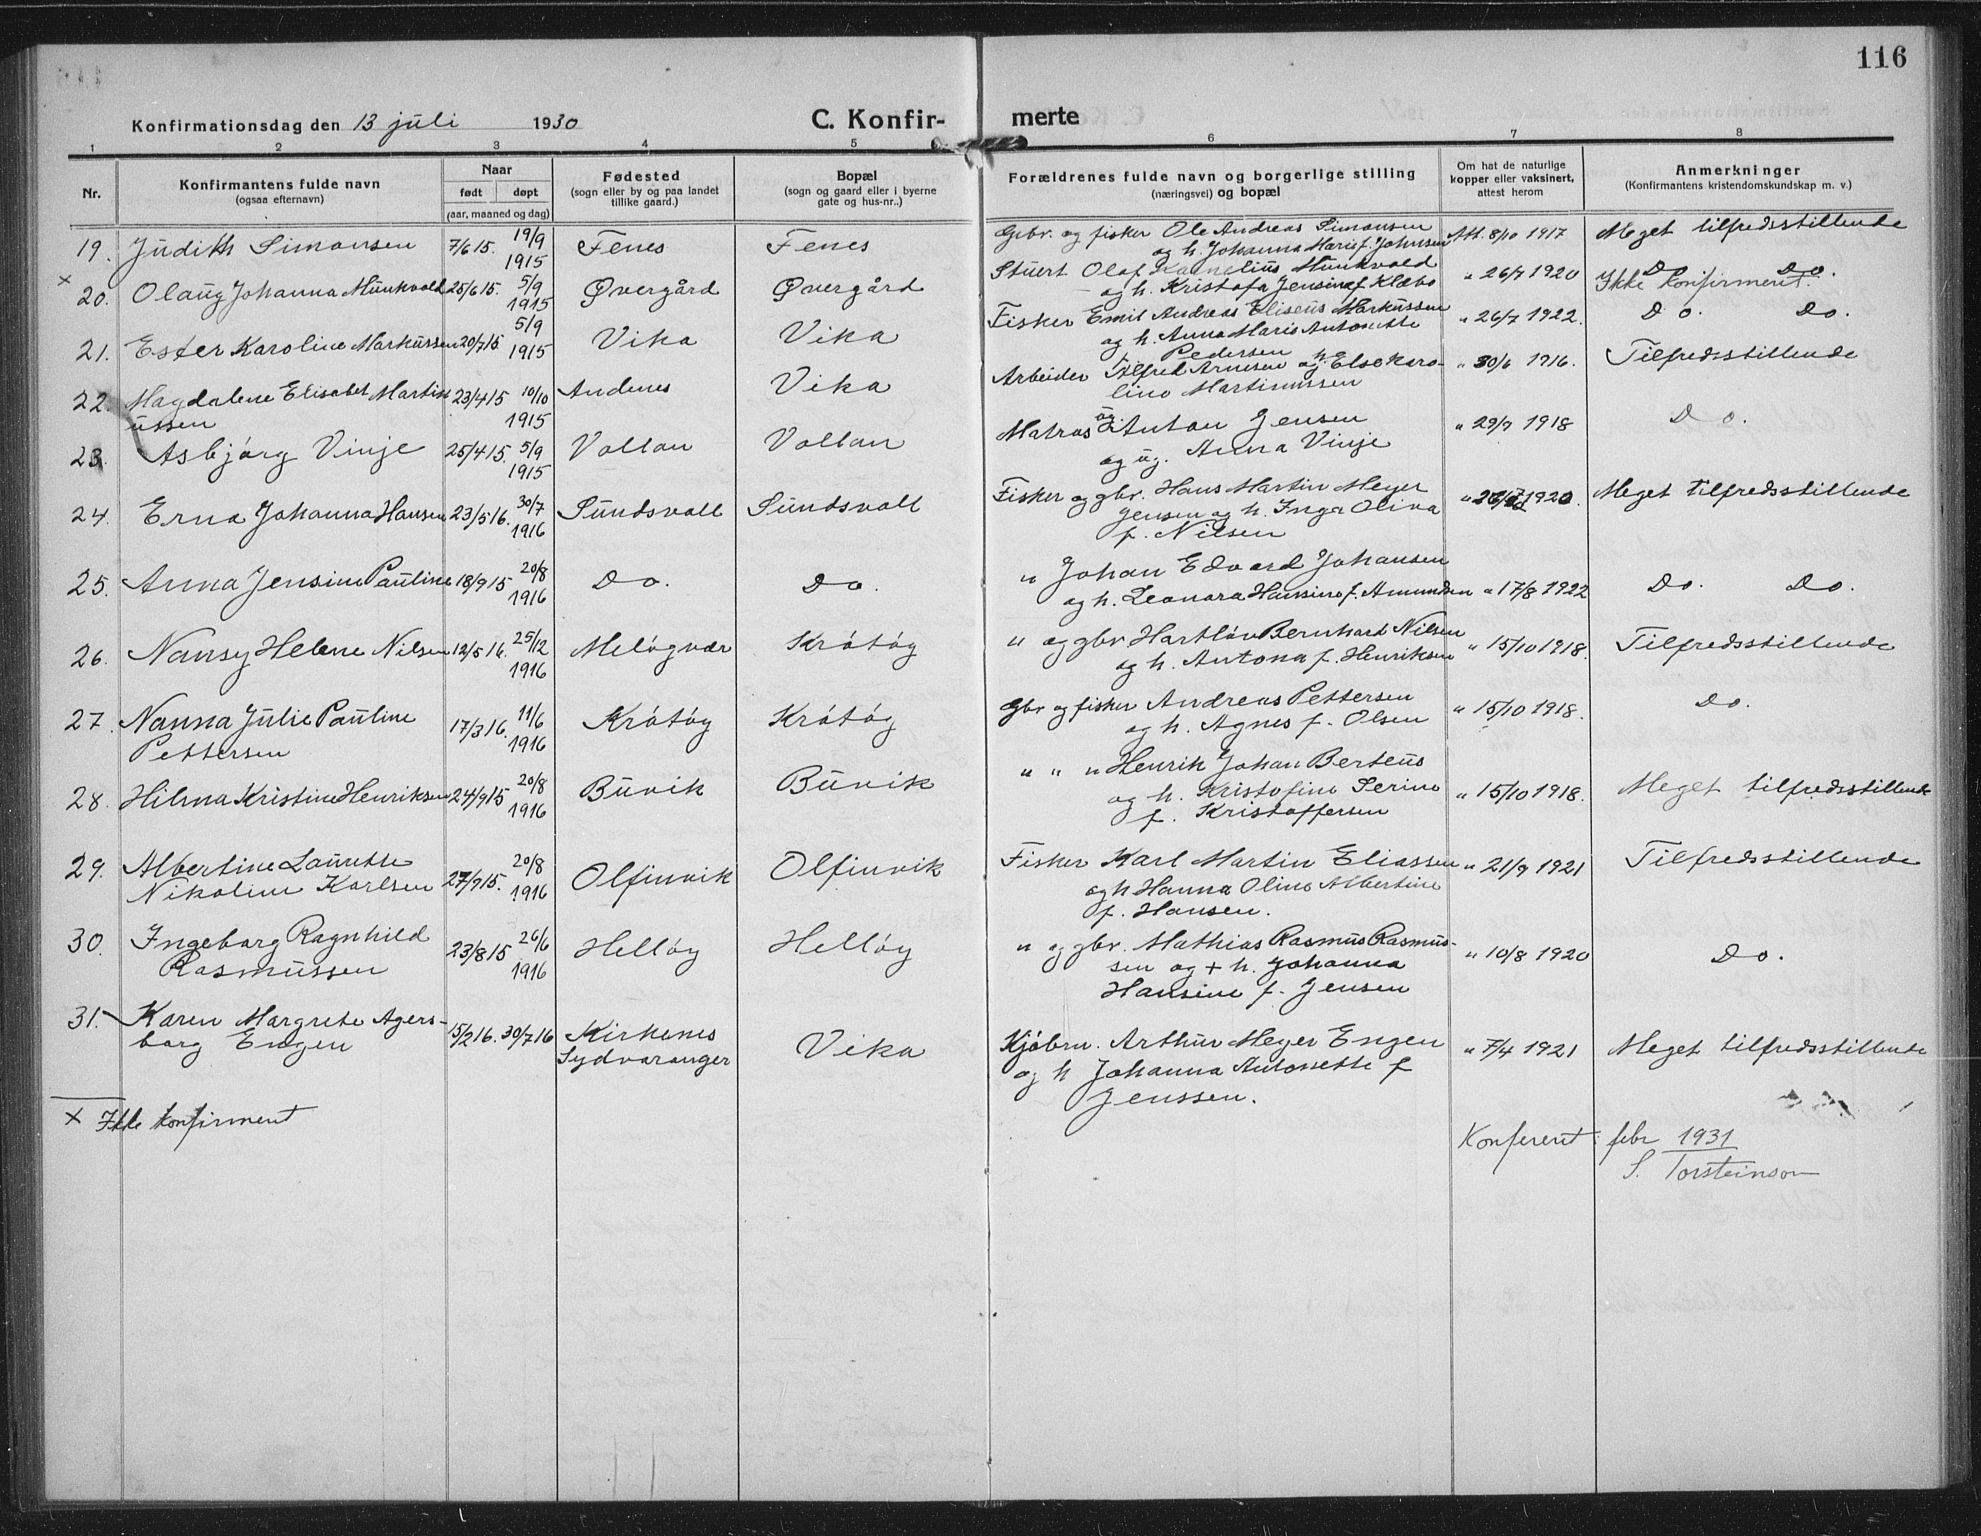 116
Konfirmationsdag den 13 juli 1930
C. Konfir- merte
1 2 3 4 5 6 7 8
Nr.
Konfirmantens fulde navn
(ogsaa efternavn)
Naar
født døpt
(aar, maaned og dag)
Fødested
(sogn eller by og paa landet
tillike gaard.)
Bopæl
(sogn og gaard eller i byerne
gate og hus-nr..)
Forældrenes fulde navn og borgerlige stilling
(næringsvei) og bopæl
Om hat de naturlige
kopper eller vaksinert,
attest herom
Anmerkninger
(Konfirmantens kristendomskundskap m. v.)
19. Judith Simonsen 7/6 15. 19/9 1915 Fenes Fenes Gbr. og fisker Ole Andreas Simonsen
og h. Johanna Marie f. Johnsen Att. 8/10 1917 Meget tilfredsstillende
x 20. Olaug Johanna Munkvold 25/6 15. 5/9 1915 Øvergård Øvergård Stuert Olaf Kornelius Munkvold
og h. Kristofa Jensine f. Klæbo " 26/7 1920 Do. Do.
Ikke konfirmert.
21. Ester Karoline Markussen 20/7 15. 5/9 1915 Vika Vika Fisker Emil Andreas Eliseus Markussen
og h. Anna Marie Antonette
Pedersen " 26/7 1922. Do. Do.
22. Magdalene Elisabet Martin-
ussen 23/4 15 10/10 1915 Andenes Vika Arbeider Alfred Arnesen og h. Else Karo-
line Martinussen " 30/6 1916. Tilfredsstillende
23. Asbjørg Vinje 25/4 15. 5/9 1915 Vollan Vollan Matros ug. Anton Jensen
og ug. Anna Vinje " 29/7 1918 Do.
24. Erna Johanna Hansen 23/5 16. 30/7 1916 Sundsvoll Sundsvoll Fisker og gbr. Hans Martin Meyer
Jensen og h. Inga Oliva
f. Nilsen 1920. Meget tilfredsstillende
25. Anna Jensine Pauline 18/9 15 20/8 1916 Do. Do. " Johan Edvard Johansen
og h. Leonora Hansine f. Amundsen " 17/8 1922 Do. Do.
26. Nansy Helene Nilsen 12/5 16. 25/12 1916 Meløyvær Krøtøy " og gbr Hartløv Bernhard Nilsen
og h. Antona f. Henriksen " 15/10 1918. Tilfredsstillende
27. Nanna Julie Pauline
Pettersen 17/3 16. 11/6 1916 Krøtøy Krøtøy Gbr og fisker Andreas Pettersen
og h. Agnes f. Olsen " 15/10 1918. Do.
28. Hilma Kristine Henriksen 24/9 15 20/8 1916 Buvik Buvik " " " Henrik Johan Berteus
og h. Kristofine Serine
f. Kristoffersen " 15/10 1918. Meget tilfredsstillende
29. Albertine Laurette
Nikoline Karlsen 27/9 15. 20/8 1916 Olfinvik Olfinvik Fisker Karl Martin Eliassen
og h Hanna Oline Albertine
f. Hansen. " 21/9 1921 Tilfredsstillende
30. Ingeborg Ragnhild
Rasmussen 23/8 15 26/6 1916 Helløy Helløy " og gbr. Mathias Rasmus Rasmus-
sen og + h. Johanna
Hansine f. Jensen " 10/8 1920 Do.
31. Karen Margrete Agers-
borg Engen 15/2 16. 30/7 16 Kirkenes
Sydvaranger Vika Kjøbm. Arthur Meyer Engen
og h Johanna Antonette f
Jenssen. " 7/4 1921 Meget tilfredsstillende
x Ikke konfirmert
Konferert febr 1931
S. Torsteinson